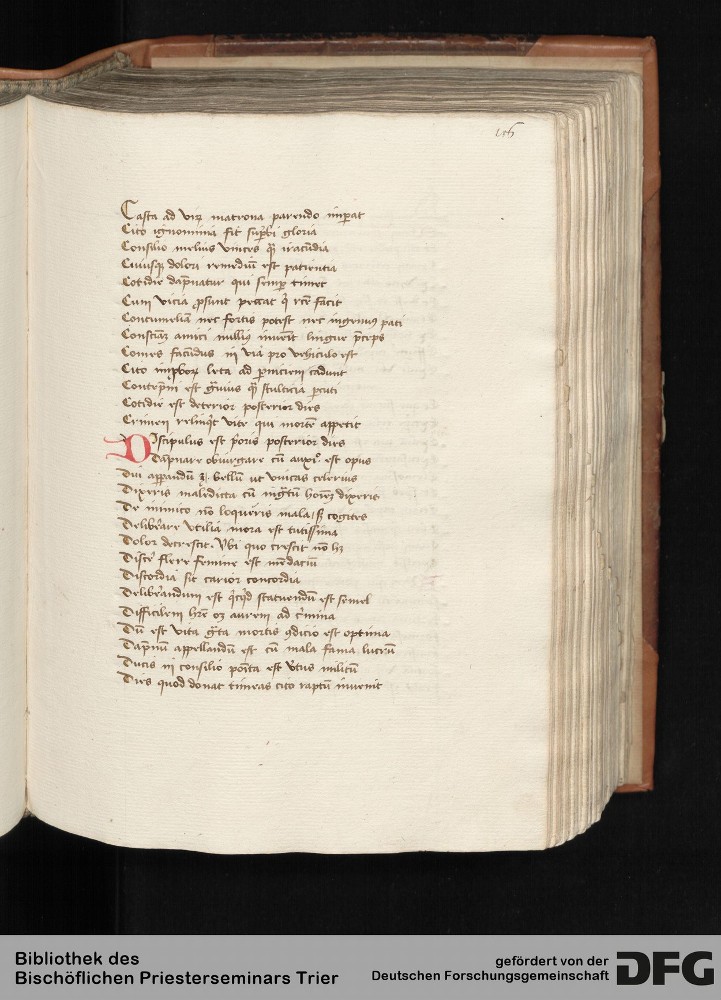 Casta ad virꝫ matrona parendo imꝑat
Cito ignominia fit suꝑbi gloria
Consilio melius vinces qͣ iracūdia
Cuiusqꝫ dolori remediū est patientia
Cotidie dāpnatur qui semꝑ timet
Cum vicia ꝓsunt peccat qͥ rc̄e facit
Contumeliā nec fortis potest nec ingenuꝰ pati
Constāciā amici nulliꝰ invenit lingue p̄ceps
Comes facūdus in via pro vehiculo est
Cito imꝓborꝝ leta ad ꝑniciem cadunt
Contēpni est gͣuius qͣ stulticia ꝑcuti
Cotidie est deterior posterior dies
Crimen relinqͥt vite qui mortē appetit
Discipulus est pͥoris posterior dies
Dāpnare obiurgare cū auxiº est opus
Diu apparandū ꝫ bellū ut vincas celerius
Dixeris maledicta cū ingͣtū hoīeꝫ dixeris
De inimico nō loqueris mala sꝫ cogites
Deliberare vtilia mora est tutissima
Dolor decrescit vbi quo crescit nō hꝫ
Disce flere femine est mēdaciū
Discordia fit carior concordia
Deliberandum est qͥcqͥd statuendū est semel
Difficilem hr̄e oꝫ aurem ad cͥmina
Dū est vita gͣta mortis ꝯdicio est optima
Dāpnum appellandū est cū mala fama lucrū
Ducis in consilio poīta est vͥtus militū
Dies quod donat timeas cito raptū invenit
Bibliothek des
Bischöflichen Priesterseminars Trier
gefördert von der
Deutschen Forschungsgemeinschaft
DFG